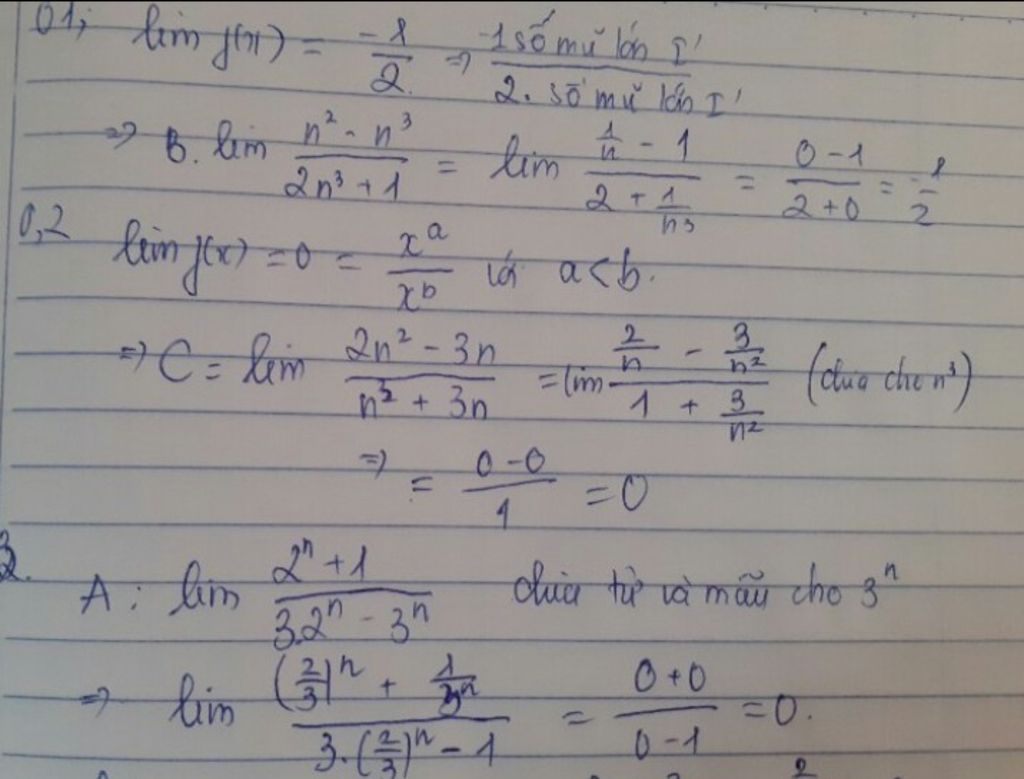 01; lim f(x) = -1/2 ⇒ -1 số mũ lớn I' / 2. số mũ lớn I'
⇒ B. lim (n² - n³)/(2n³ + 1) = lim (1/n - 1)/(2 + 1/n³) = (0 - 1)/(2 + 0) = -1/2
0,2 lim f(x) = 0 = x^a/x^b với a < b.
⇒ C = lim (2n² - 3n)/(n³ + 3n) = lim (2/n - 3/n²)/(1 + 3/n²) (chia cho n³)
⇒ = (0 - 0)/1 = 0
3. A : lim (2ⁿ + 1)/(3.2ⁿ - 3ⁿ) chia tử và mẫu cho 3ⁿ
⇒ lim ((2/3)ⁿ + 1/3ⁿ)/(3.(2/3)ⁿ - 1) = (0 + 0)/(0 - 1) = 0.